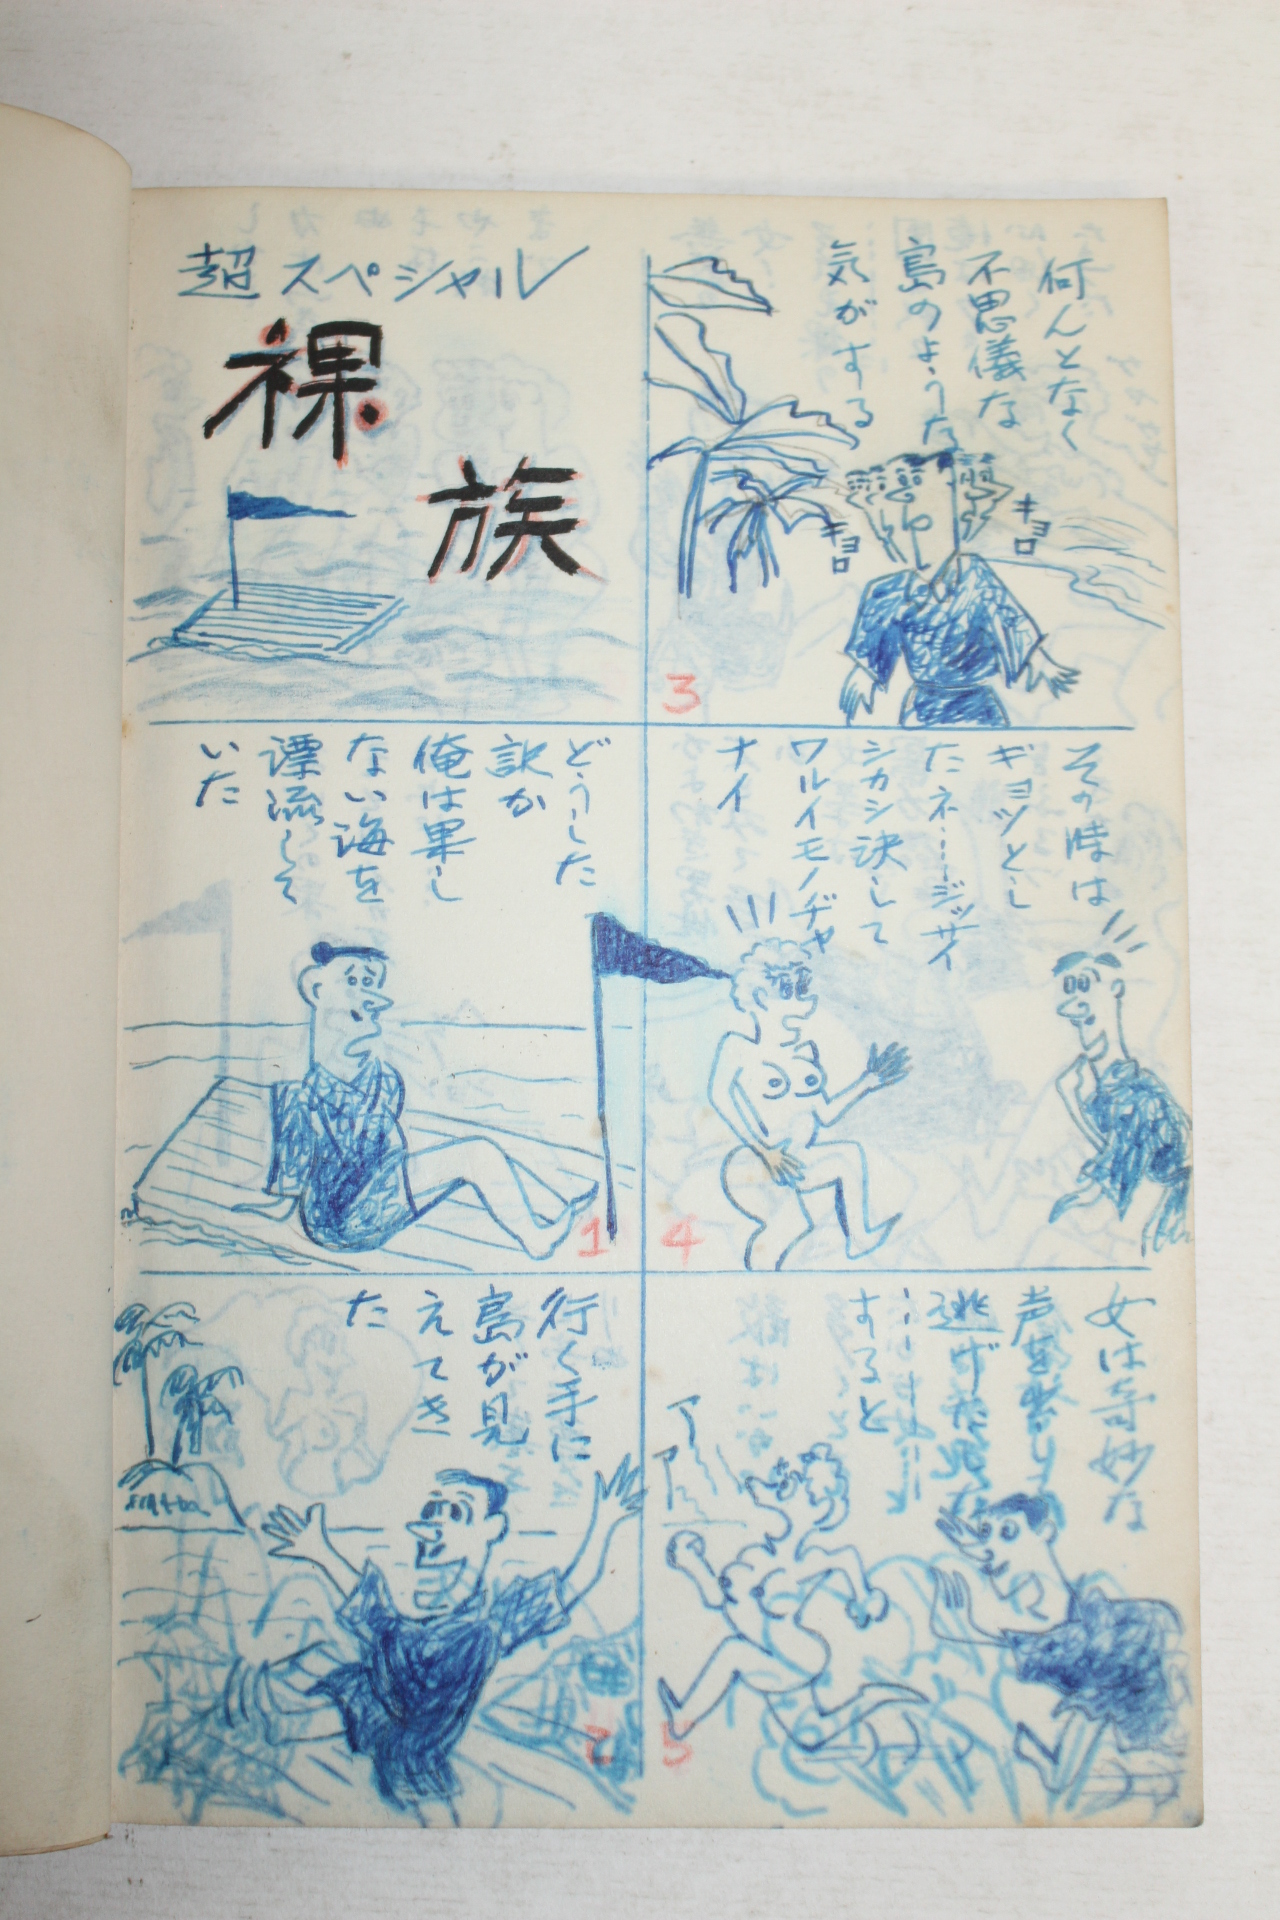 超スペシャル
裸族
どうした
訳か
俺は果し
ない海を
漂流して
いた
1
行く手に
島が見
えてき
た
2
何んとなく
不思儀な
島のような
気がする
キョロ
キョロ
3
その時は
ギョッとし
たネ……ジッサイ
シカシ決して
ワルイモノヂャ
ナイ
4
女は奇妙な
声を発し
逃げだした
すると
アア
5